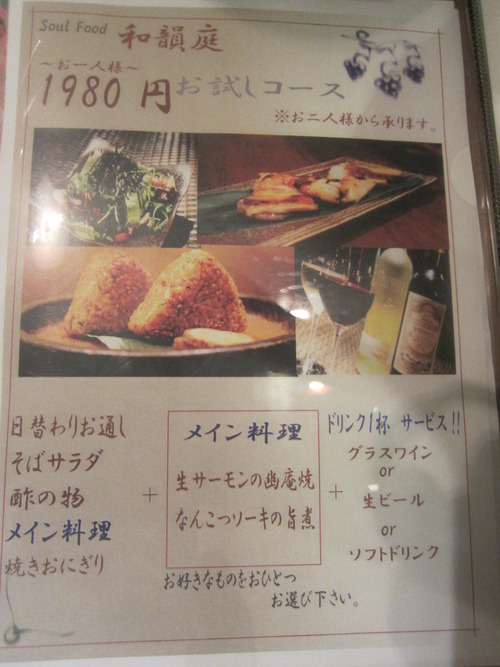 Soul Food 和韻庭
～お一人様～
1980円お試しコース
※お二人様から承ります。
日替わりお通し
そばサラダ
酢の物
メイン料理
焼きおにぎり
+
メイン料理
生サーモンの幽庵焼
なんこつソーキの旨煮
お好きなものをおひとつ
お選び下さい。
+
ドリンク1杯 サービス!!
グラスワイン
or
生ビール
or
ソフトドリンク